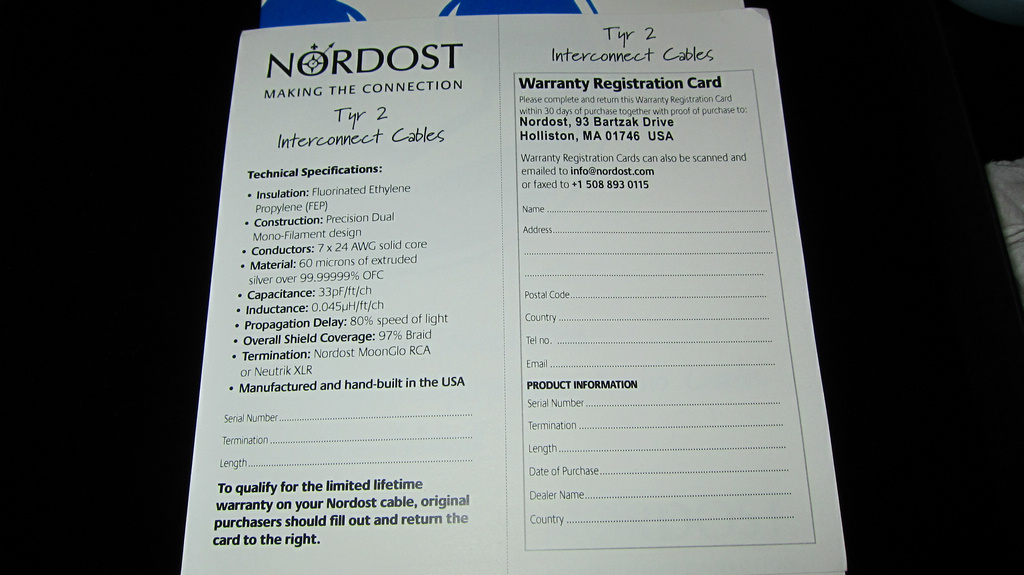 NORDOST
MAKING THE CONNECTION
Tyr 2
Interconnect Cables
Technical Specifications:
• Insulation: Fluorinated Ethylene
Propylene (FEP)
• Construction: Precision Dual
Mono-Filament design
• Conductors: 7 x 24 AWG solid core
• Material: 60 microns of extruded
silver over 99.99999% OFC
• Capacitance: 33pF/ft/ch
• Inductance: 0.045µH/ft/ch
• Propagation Delay: 80% speed of light
• Overall Shield Coverage: 97% Braid
• Termination: Nordost MoonGlo RCA
or Neutrik XLR
• Manufactured and hand-built in the USA
Serial Number
Termination
Length
To qualify for the limited lifetime
warranty on your Nordost cable, original
purchasers should fill out and return the
card to the right.
Tyr 2
Interconnect Cables
Warranty Registration Card
Please complete and return this Warranty Registration Card
within 30 days of purchase together with proof of purchase to:
Nordost, 93 Bartzak Drive
Holliston, MA 01746 USA
Warranty Registration Cards can also be scanned and
emailed to info@nordost.com
or faxed to +1 508 893 0115
Name
Address
Postal Code
Country
Tel no.
Email
PRODUCT INFORMATION
Serial Number
Termination
Length
Date of Purchase
Dealer Name
Country